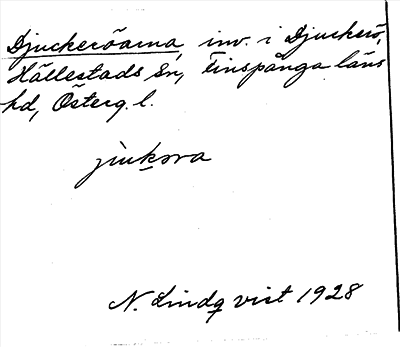 Djuckeröarna, inv. i Djuckerö,
Hällestads sn, Finspånga läns
hd, Österg. l.
jùkɔra
N. Lindqvist 1928